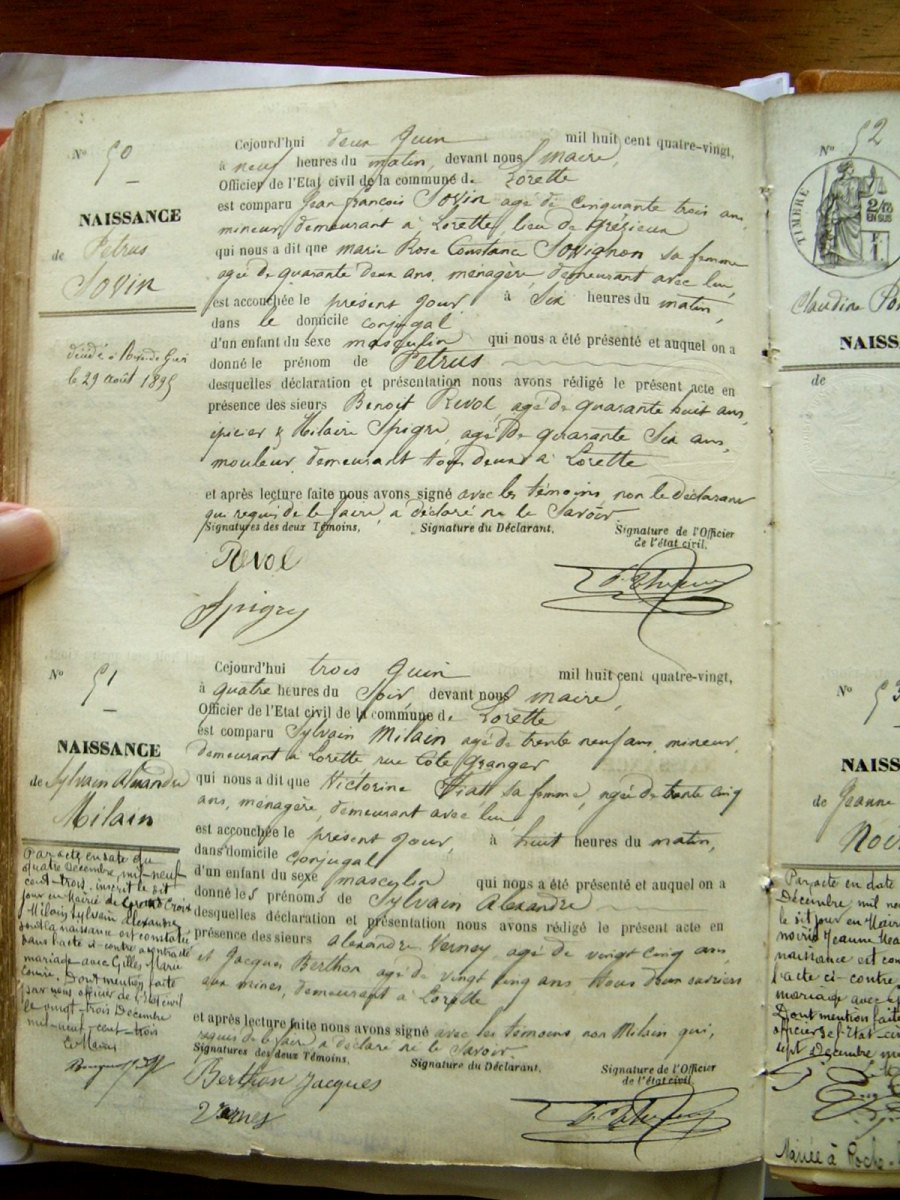 N° 50
NAISSANCE
de Petrus
Sovin
décédé à
le 29 août 1895
Cejourd'hui deux Juin mil huit cent quatre-vingt,
à neuf heures du matin, devant nous maire,
Officier de l'Etat civil de la commune de Lorette
est comparu Jean François Sovin agé de Cinquante trois ans
mineur, demeurant à Lorette, lieu de Grézieux
qui nous a dit que marie Rose Constance Sovignon sa femme
agée de quarante deux ans, menagère, demeurant avec lui,
est accouchée le présent jour, à Six heures du matin,
dans le domicile conjugal
d'un enfant du sexe masculin qui nous a été présenté et auquel on a
donné le prénom de Petrus
desquelles déclaration et présentation nous avons rédigé le présent acte en
présence des sieurs Benoit Revol, agé de quarante huit ans,
épicier & Hilaire Spigre, agé de quarante Six ans,
mouleur, demeurant tous deux à Lorette
et après lecture faite nous avons signé avec les témoins, non le déclarant
qui requis de le faire, a déclaré ne le Savoir.
Signatures des deux Témoins. Signature du Déclarant. Signature de l'Officier
de l'état civil.
Revol
Spigre
N° 51
NAISSANCE
de Sylvain Alexandre
Milain
Par acte en date du
quatre Décembre, mil-neuf-
cent-trois, inscrit le dit
jour en Mairie de Croix
Milain Sylvain Alexandre,
dont la naissance est constatée
dans l'acte ci-contre a contracté
mariage avec Gilles Marie
Dont mention faite
par nous officier de l'Etat civil
le vingt-trois Décembre
mil-neuf-cent-trois
Cejourd'hui trois Juin mil huit cent quatre-vingt,
à quatre heures du Soir, devant nous maire,
Officier de l'Etat civil de la commune de Lorette
est comparu Sylvain Milain agé de trente neuf ans, mineur,
demeurant à Lorette rue Côte Granger
qui nous a dit que Victorine sa femme, agée de trente cinq
ans, menagère, demeurant avec lui
est accouchée le présent jour, à huit heures du matin,
dans domicile conjugal
d'un enfant du sexe masculin qui nous a été présenté et auquel on a
donné les prénoms de Sylvain Alexandre
desquelles déclaration et présentation nous avons rédigé le présent acte en
présence des sieurs Alexandre Verney, agé de vingt cinq ans,
et Jacques Berthon agé de vingt cinq ans tous deux ouvriers
aux mines, demeurant à Lorette
et après lecture faite nous avons signé avec les témoins non Milain qui,
requis de le faire a déclaré ne le Savoir.
Signatures des deux Témoins. Signature du Déclarant. Signature de l'Officier
de l'état civil.
Berthon Jacques
N° 52
TIMBRE
2/10
EN SUS
Claudine
NAISS
de
N° 53
NAISS
de Jeanne
Par acte en date
Décembre mil
le dit jour en Mair
Jeanne
naissance est con
l'acte ci-contre
mariage avec
Dont mention faite
officier de l'Etat-ci
sept décembre
Mariée à Roch